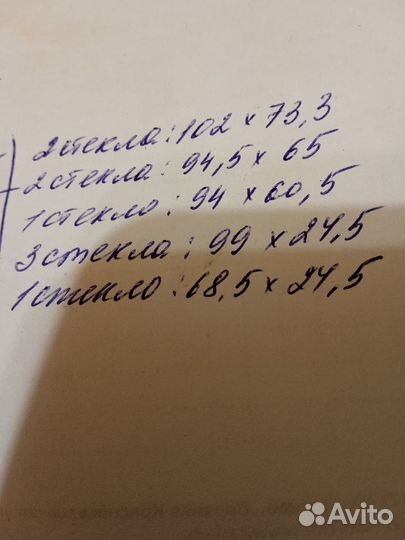 2 стекла: 102 х 73,3
2 стекла: 94,5 х 65
1 стекло: 94 х 60,5
3 стекла: 99 х 24,5
1 стекло: 68,5 х 24,5
Avito